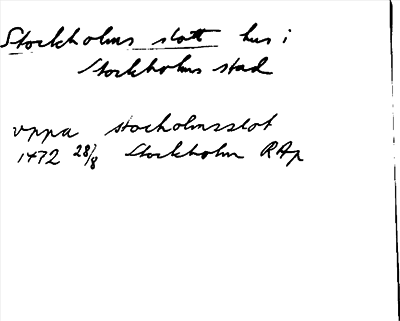 Stockholms slott hus i
Stockholms stad
vppa stocholmsslot
1472 28/8 Stockholm RAp